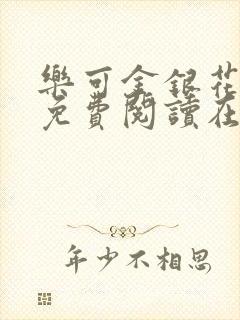 樂可金銀花
免費閱讀在
年少不相思